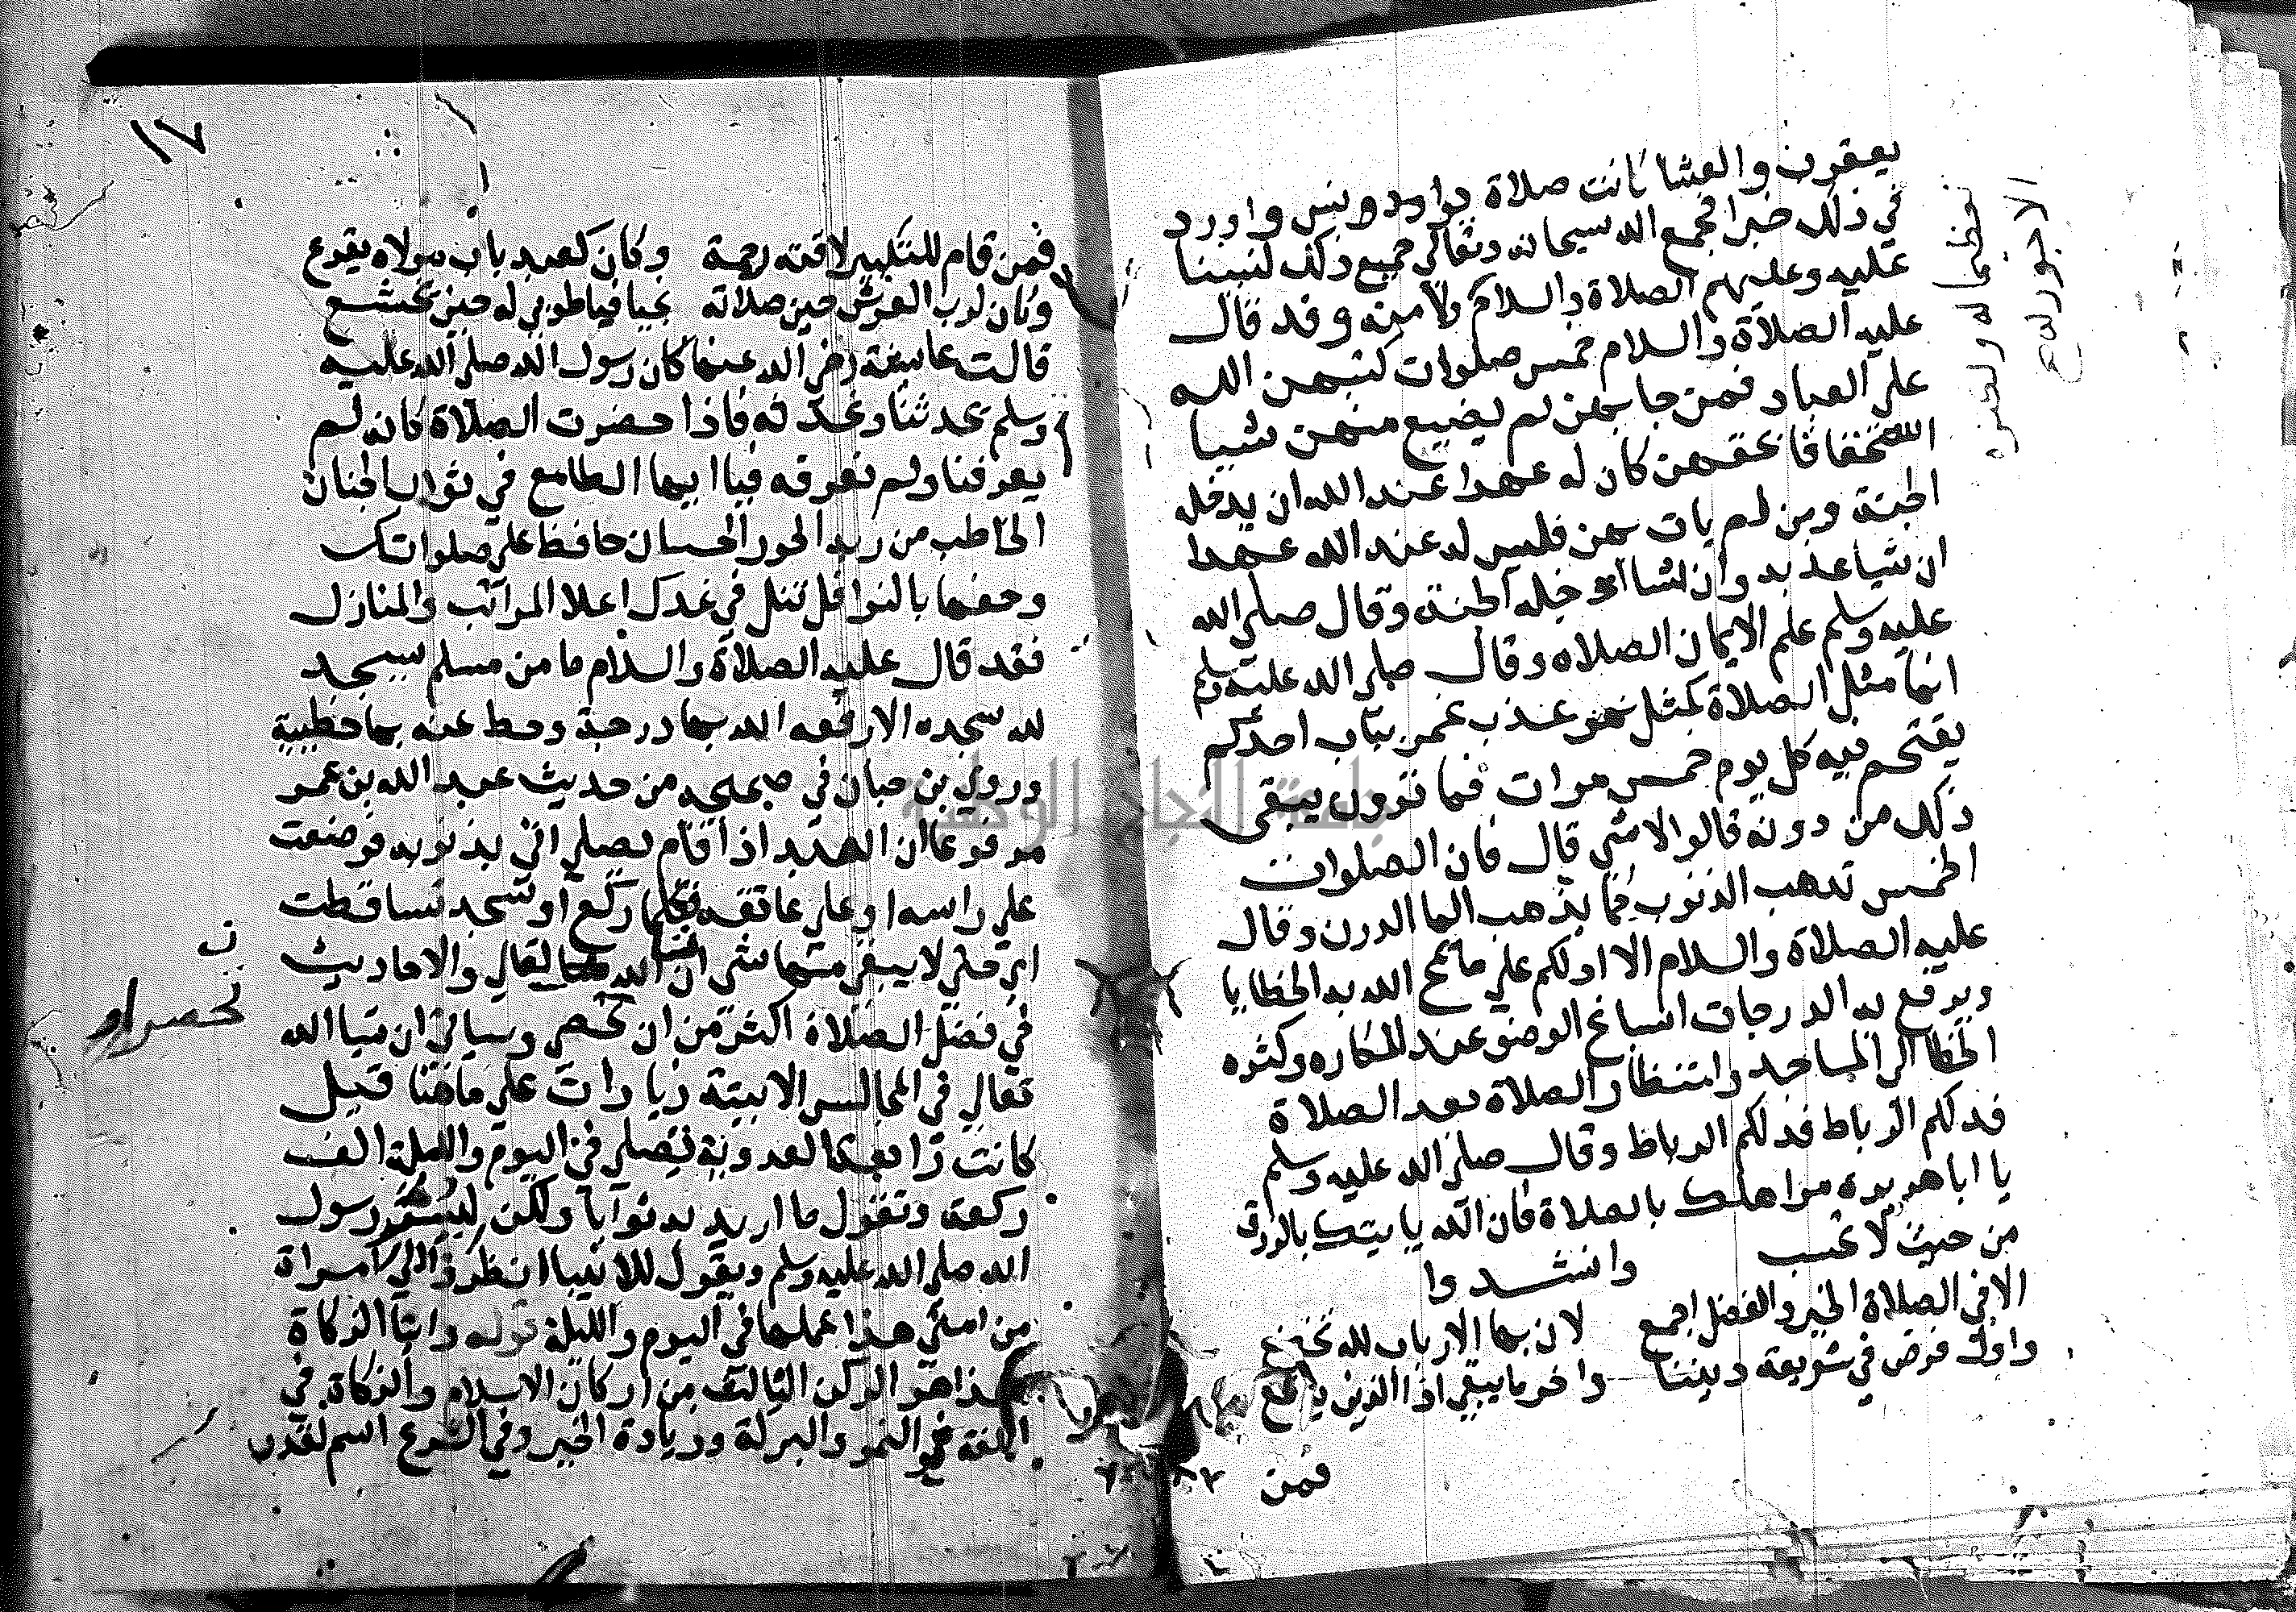 يعقوب والعشا كانت صلاة يونس واورد
في ذلك خبرا فجمع الله سبحانه وتعالى جميع ذلك لنبينا
عليه وعليهم الصلاة والسلام ولامته وقد قال
عليه الصلاة والسلام خمس صلوات كتبهن الله
على العباد فمن جا بهن لم يضيع منهن شييا
استخفافا بحقهن كان له عهدا عند الله ان يدخله
الجنة ومن لم يات بهن فليس له عند الله عهدا
ان شيا عذبه وان شا ادخله الجنة وقال صلى الله
عليه وسلم علم الايمان الصلاه وقال صلى الله عليه وسلم
انما مثل الصلاة كمثل نهر عذب غمر بباب احدكم
يقتحم فيه كل يوم خمس مرات فما ترون يبقى
ذلك من درنه قالوا لا شي قال فان الصلوات
الخمس تذهب الذنوب كما يذهب الما الدرن وقال
عليه الصلاة والسلام الا ادلكم على ما يمح الله به الخطايا
ويرفع به الدرجات اسباغ الوضو عند المكاره وكثره
الخطا الى المساجد وانتظار الصلاة بعد الصلاة
فدلكم الرباط فدلكم الرباط وقال صلى الله عليه وسلم
يا ابا هريره مر اهلك بالصلاة فان الله ياتيك بالرزق
من حيث لا تحتسب وانشدوا
الا في الصلاة الخير والفضل اجمع لان بها الارباب لله تخضع
واول فرض في شريعة ديننا واخر ما يبقى اذا الدين يرفع
فمن
١٧
فمن قام للتكبير لاقته رحمة وكان كعبد باب مولاه يقرع
وكان لرب العرش حين صلاته نجيا فيا طوبى له حين يخشع
قالت عايشة رضي الله عنها كان رسول الله صلى الله عليه
وسلم يحدثنا ونحدثه فاذا حضرت الصلاة كانه لم
يعرفنا ولم نعرفه فيا ايها الطامع في ثواب الجنان
الخاطب من ربه الحور الحسان حافظ على صلواتك
وحفها بالنوافل تنل في غدك اعلا المراتب والمنازل
فقد قال عليه الصلاة والسلام ما من مسلم يسجد
لله سجده الا رفعه الله بها درجة وحط عنه بها خطيية
وروى بن حبان في صحيحه من حديث عبد الله بن عمر
مرفوعا ان العبد اذا قام يصلي اتي بذنوبه فوضعت
على راسه او على عاتقه فكلما ركع او سجد تساقطت
اي حتى لا يبقى منها شي ان شا الله تعالى والاحاديث
في فضل الصلاة اكثر من ان تحصى وسياتي ان شا الله
تعالى في المجالس الاتية زيادات على ما هنا قيل
كانت رابعة العدوية تصلي في اليوم والليلة الف
ركعة وتقول ما اريد به ثوابا ولكن ليسر رسول
الله صلى الله عليه وسلم ويقول للانبيا انظروا الى امراة
من امتي هذا عملها في اليوم والليلة قوله وايتا الزكاة
هذا هو الركن الثالث من اركان الاسلام والزكاة في
اللغة هو النمو والبركة وزيادة الخير وفي الشرع اسم لقدر
جامعة النجاح الوطنية